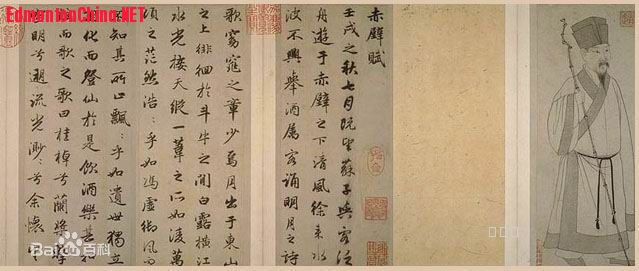 EdmontonChina.NET
赤壁賦
壬戌之秋七月既望蘇子與客泛
舟遊于赤壁之下清風徐来水
波不興舉酒属客誦明月之詩
歌窈窕之章少焉月出于東山
之上徘徊於斗牛之間白露横江
水光接天縱一葦之所如凌萬
頃之茫然浩〻乎如馮虚御風而
不知其所止飄〻乎如遺世獨立
化而登仙於是飲酒樂甚
而歌之歌曰桂棹兮蘭槳擊
明兮遡流光渺〻兮余懷
Bai百科